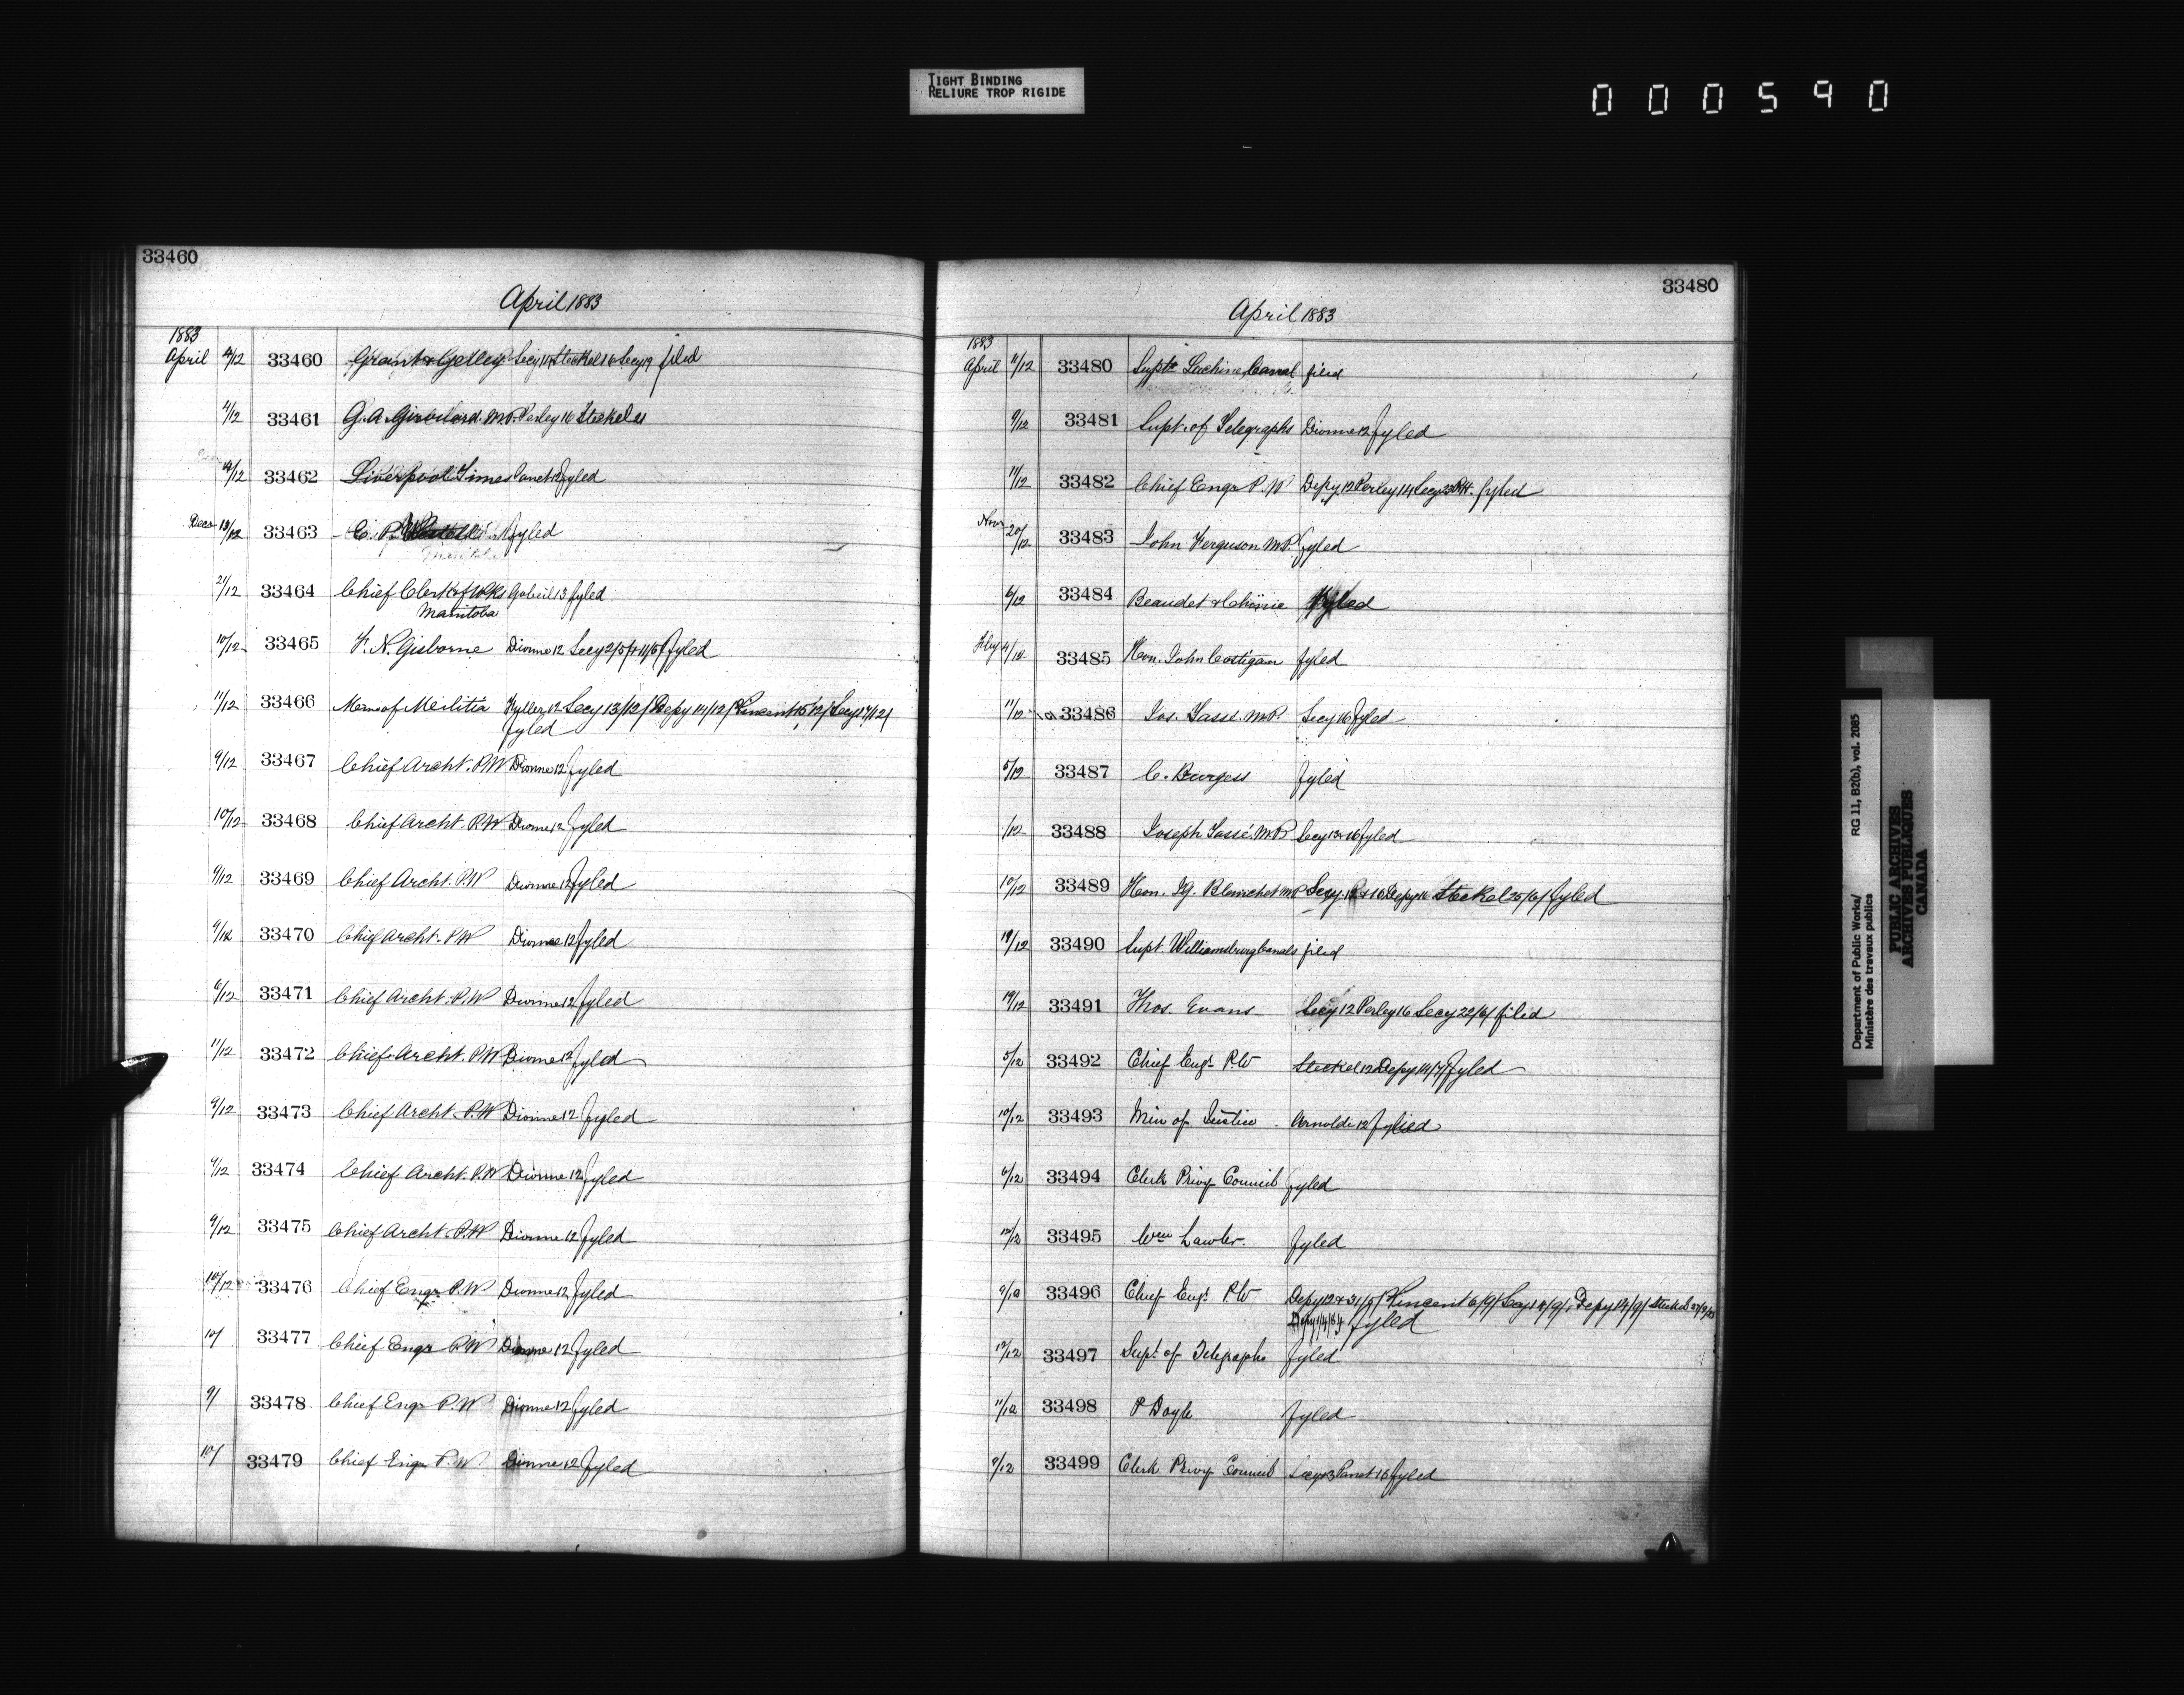 TIGHT BINDING
RELIURE TROP RIGIDE
000590
33460
April 1883
1883
April 4/12 33460 Grant & Gelley Secy 14 Steckel 16 Secy 19 filed
4/12 33461 G. A. Girouard. M.P. Perley 16 Steckel 21
12 33462 Liverpool Times fyled
Decr 13/12 33463 E. P. fyled
21/12 33464 Chief Clerk of Wks Gobeil 13 fyled
Manitoba
10/12 33465 F. N. Gisborne Dionne 12 Secy 2/5/ fyled
11/12 33466 of Militia 12 Secy 13/12/ Depy 14/12/ Vincent 15/12/ Secy 17/12/
fyled
9/12 33467 Chief Archt. P.W Dionne 12 fyled
10/12 33468 Chief Archt. P.W Dionne 12 fyled
9/12 33469 Chief Archt. P.W Dionne 12 fyled
9/12 33470 Chief Archt. P.W Dionne 12 fyled
6/12 33471 Chief Archt. P.W Dionne 12 fyled
11/12 33472 Chief Archt. P.W Dionne 12 fyled
9/12 33473 Chief Archt. P.W Dionne 12 fyled
9/12 33474 Chief Archt. P.W Dionne 12 fyled
9/12 33475 Chief Archt. P.W Dionne 12 fyled
10/12 33476 Chief Engr P.W Dionne 12 fyled
10/ 33477 Chief Engr P.W Dionne 12 fyled
9/ 33478 Chief Engr P.W Dionne 12 fyled
10/ 33479 Chief Engr P.W. Dionne 12 fyled
33480
April 1883
1883
April 11/12 33480 Supt Lachine Canal filed
9/12 33481 Supt. of Telegraphs Dionne 12 fyled
11/12 33482 Chief Engr P.W Depy 12 Perley 14 Secy fyled
Novr 20/12 33483 John Ferguson M.P. fyled
6/12 33484 Beaudet & Chinic Fyled
4/12 33485 Hon. John Costigan fyled
11/12 33486 Jos. Tassé. M.P. Secy 16 fyled
5/12 33487 C. Burgess fyled
/12 33488 Joseph Tassé. M.P. Secy 13 & 16 fyled
10/12 33489 Hon. J.G. Blanchet M.P Secy 12 & 16 Depy 16 Steckel 25/6/ fyled
19/12 33490 Supt. Williamsburg Canals filed
19/12 33491 Thos. Evans Secy 12 Perley 16 Secy 22/6/ filed
5/12 33492 Chief Engr P.W Steckel 12 Depy 14/7/ fyled
10/12 33493 Min of Justice Arnoldi 12 fyled
6/12 33494 Clerk Privy Council fyled
12/12 33495 Wm Lawlor. fyled
9/12 33496 Chief Engr P.W Depy 12 & 31/5/ Vincent 6/9/ Secy 14/9/ Depy 14/9/ Steckel
fyled
12/12 33497 Supt of Telegraphs fyled
11/12 33498 P Doyle fyled
9/12 33499 Clerk Privy Council Secy 13 Panet 16 fyled
Department of Public Works/ RG 11, B2(b), vol. 2085
Ministère des travaux publics
PUBLIC ARCHIVES
ARCHIVES PUBLIQUES
CANADA